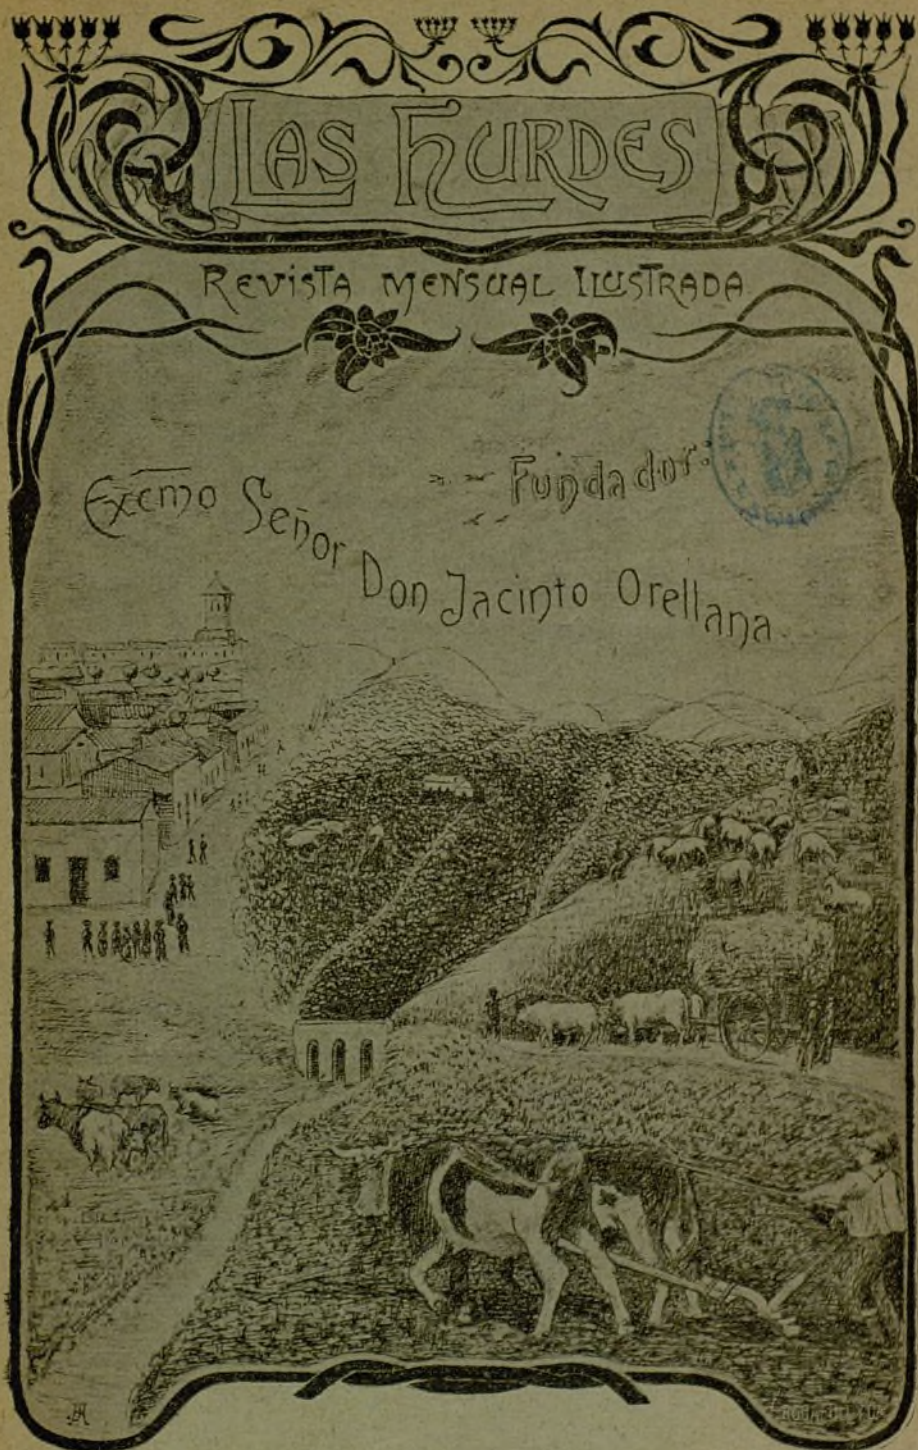 LAS HURDES
REVISTA MENSUAL ILUSTRADA
Fundador:
Excmo Señor Don Jacinto Orellana